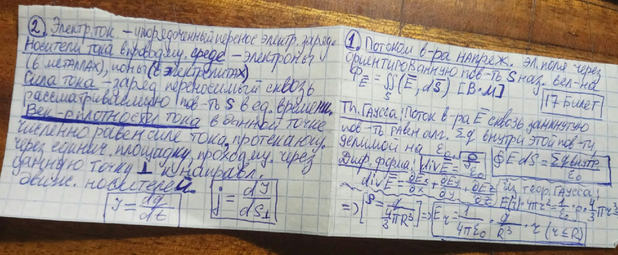 ② Электр. ток – упорядоченный перенос электр. заряда
Носители тока в проводящ. среде – электроны
(в металлах), ионы (в электролитах)
Сила тока – заряд переносимый сквозь
рассматриваемую пов-ть S в ед. времени.
Вел. плотности тока в данной точке
численно равен силе тока, протекающ.
через единич. площадку, проходящ. через
данную точку ⊥ направл.
движ. носителей
I = dq/dt j = dI/dS⊥
① Потоком в-ра напряж. эл. поля через
ориентированную пов-ть S наз. вел-на
Ф_E = ∬_S (E, dS) [В·м]
17 Билет
Th. Гаусса: Поток в-ра E сквозь замкнутую
пов-ть равен алг. Σq внутри этой пов-ти,
делимой на ε₀ ∮E dS = Σqвнутр/ε₀
Диф. форма: div E = ρ/ε₀
div E = ∂Eₓ/∂x + ∂E_y/∂y + ∂E_z/∂z из теор Гаусса:
E(r)·4πr² = 1/ε₀ · ρ · 4/3 πr³
=> [ρ = q/(4/3 πR³)] => E_r = 1/4πε₀ · q/R³ · r (r ≤ R)